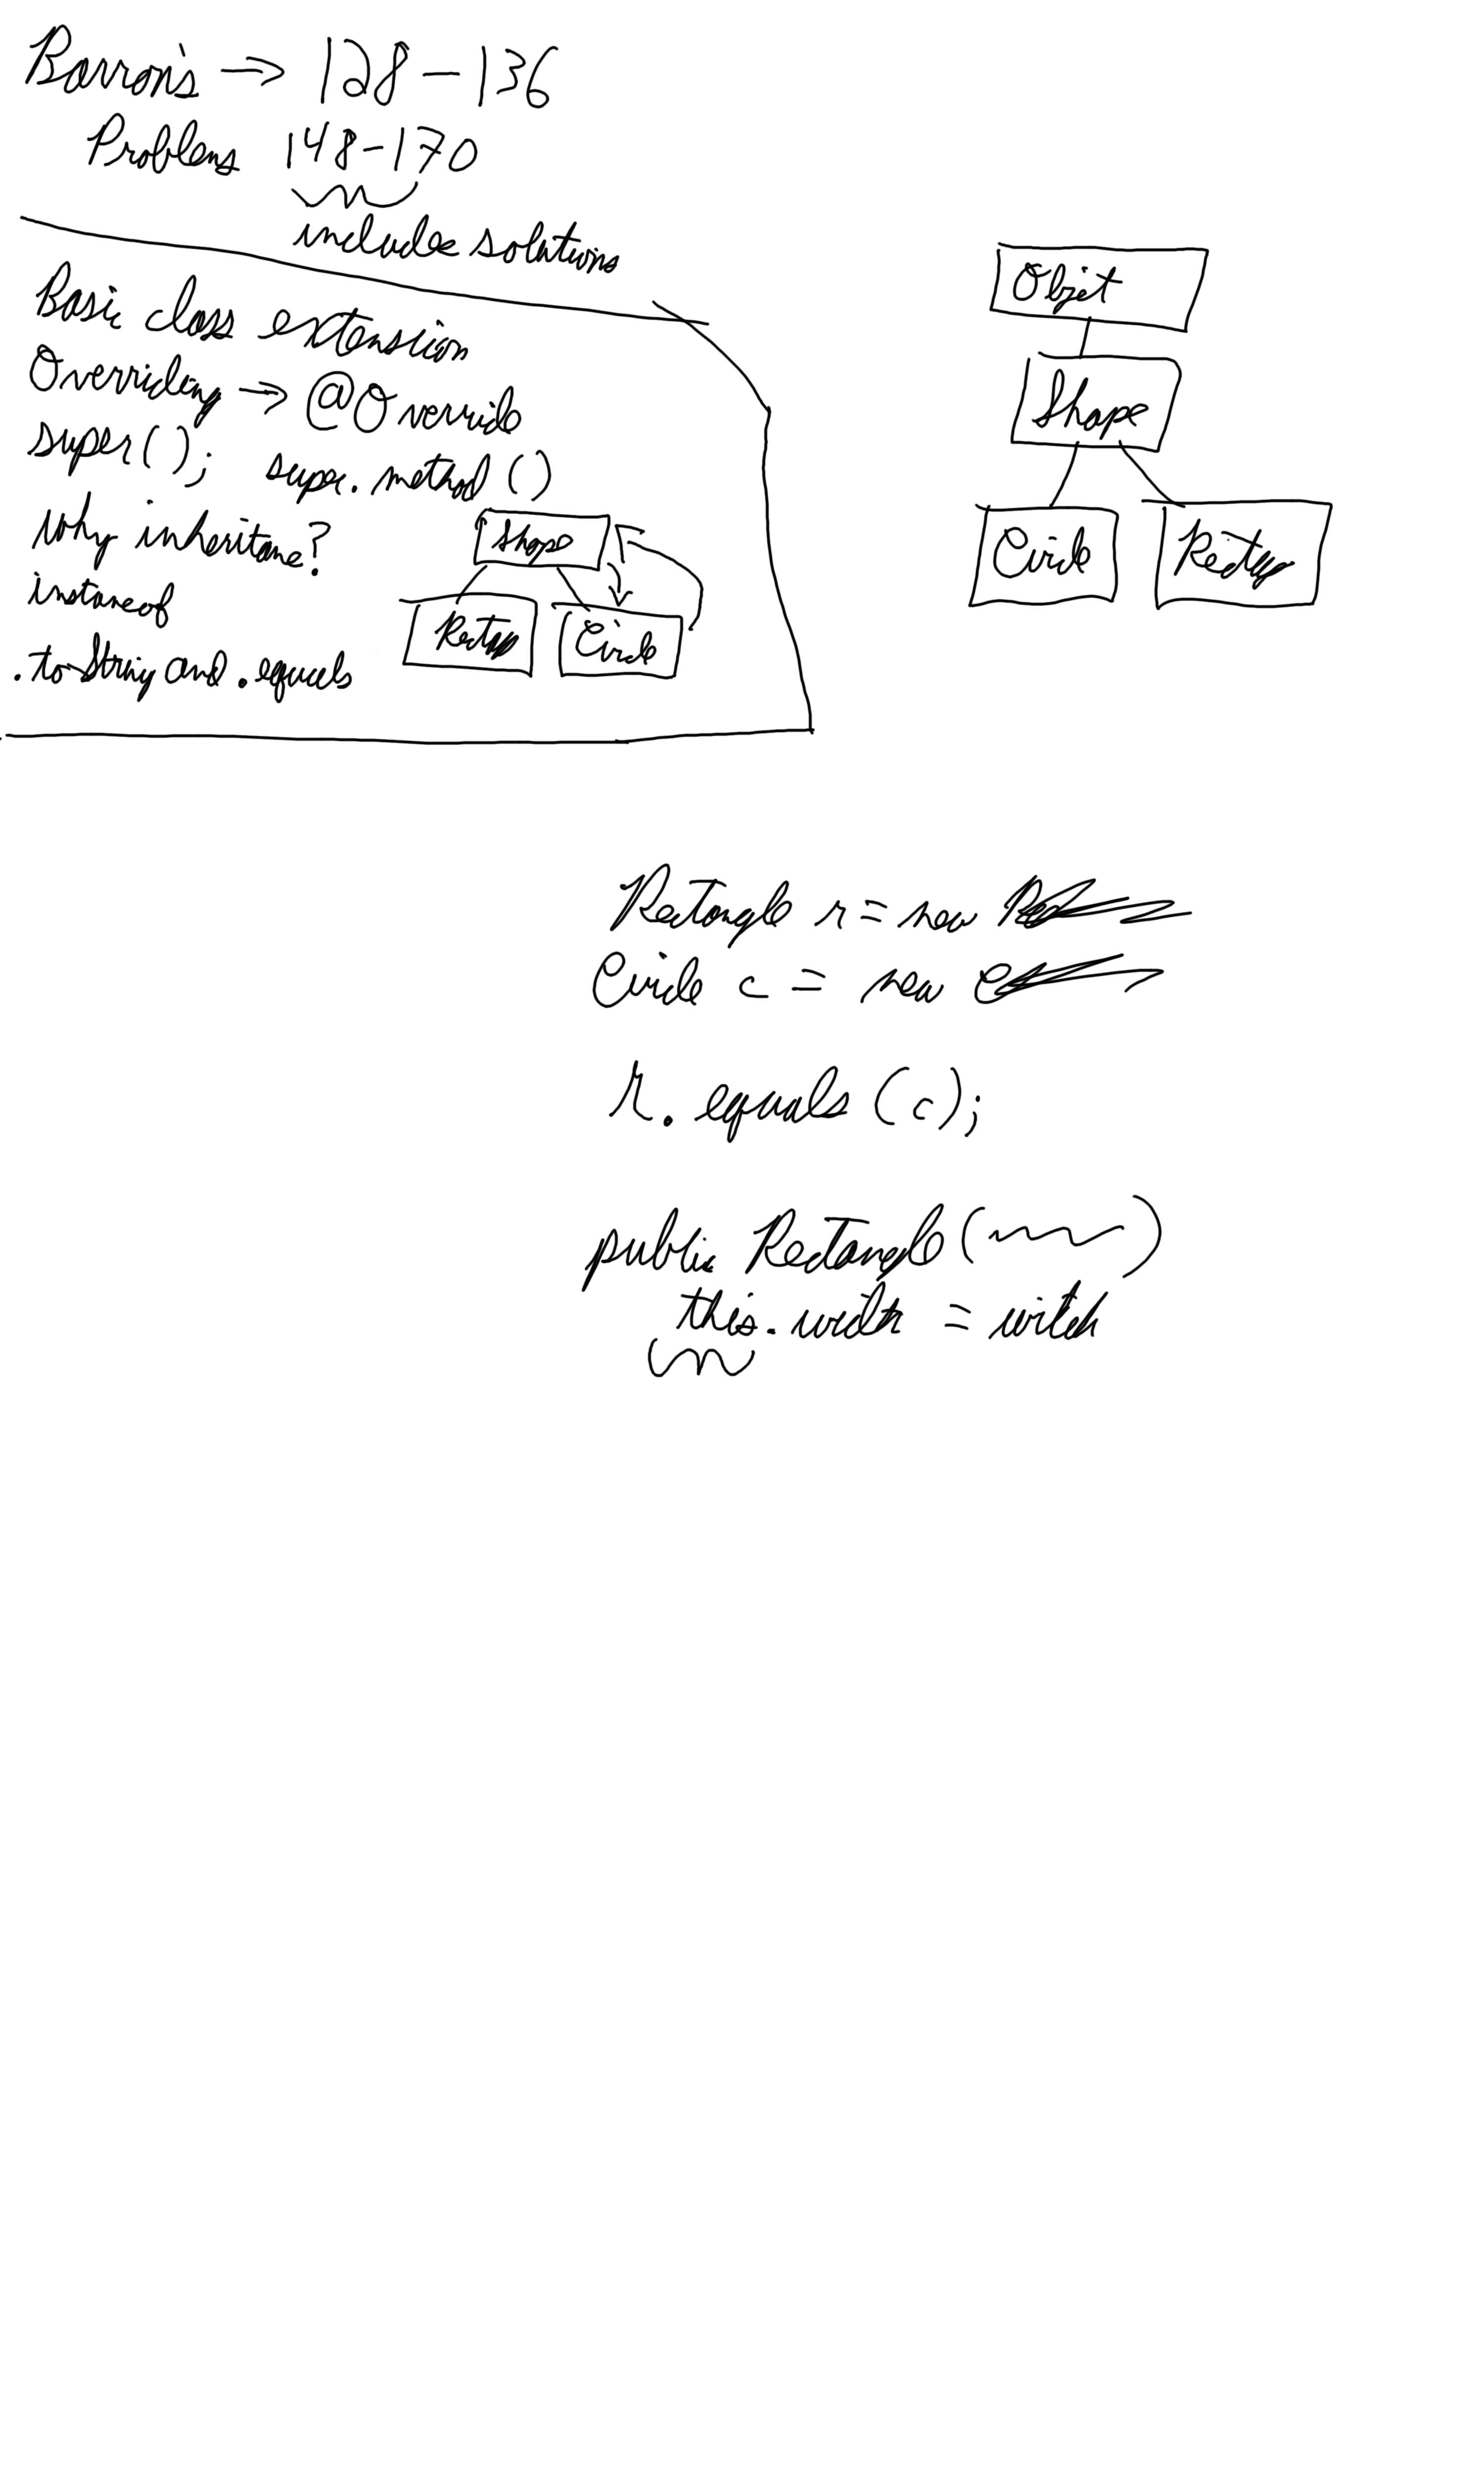 Barron's → 128-136
Problems 148-170
includes solutions
basic class extension
Overriding → @Override
super(); super.method()
Why inheritance?
instanceof
.toString and .equals
Shape
Rectangle
Circle
Object
Shape
Circle
Rectangle
Rectangle r = new
Circle c = new
r.equals(c);
public Rectangle(
this.width = width